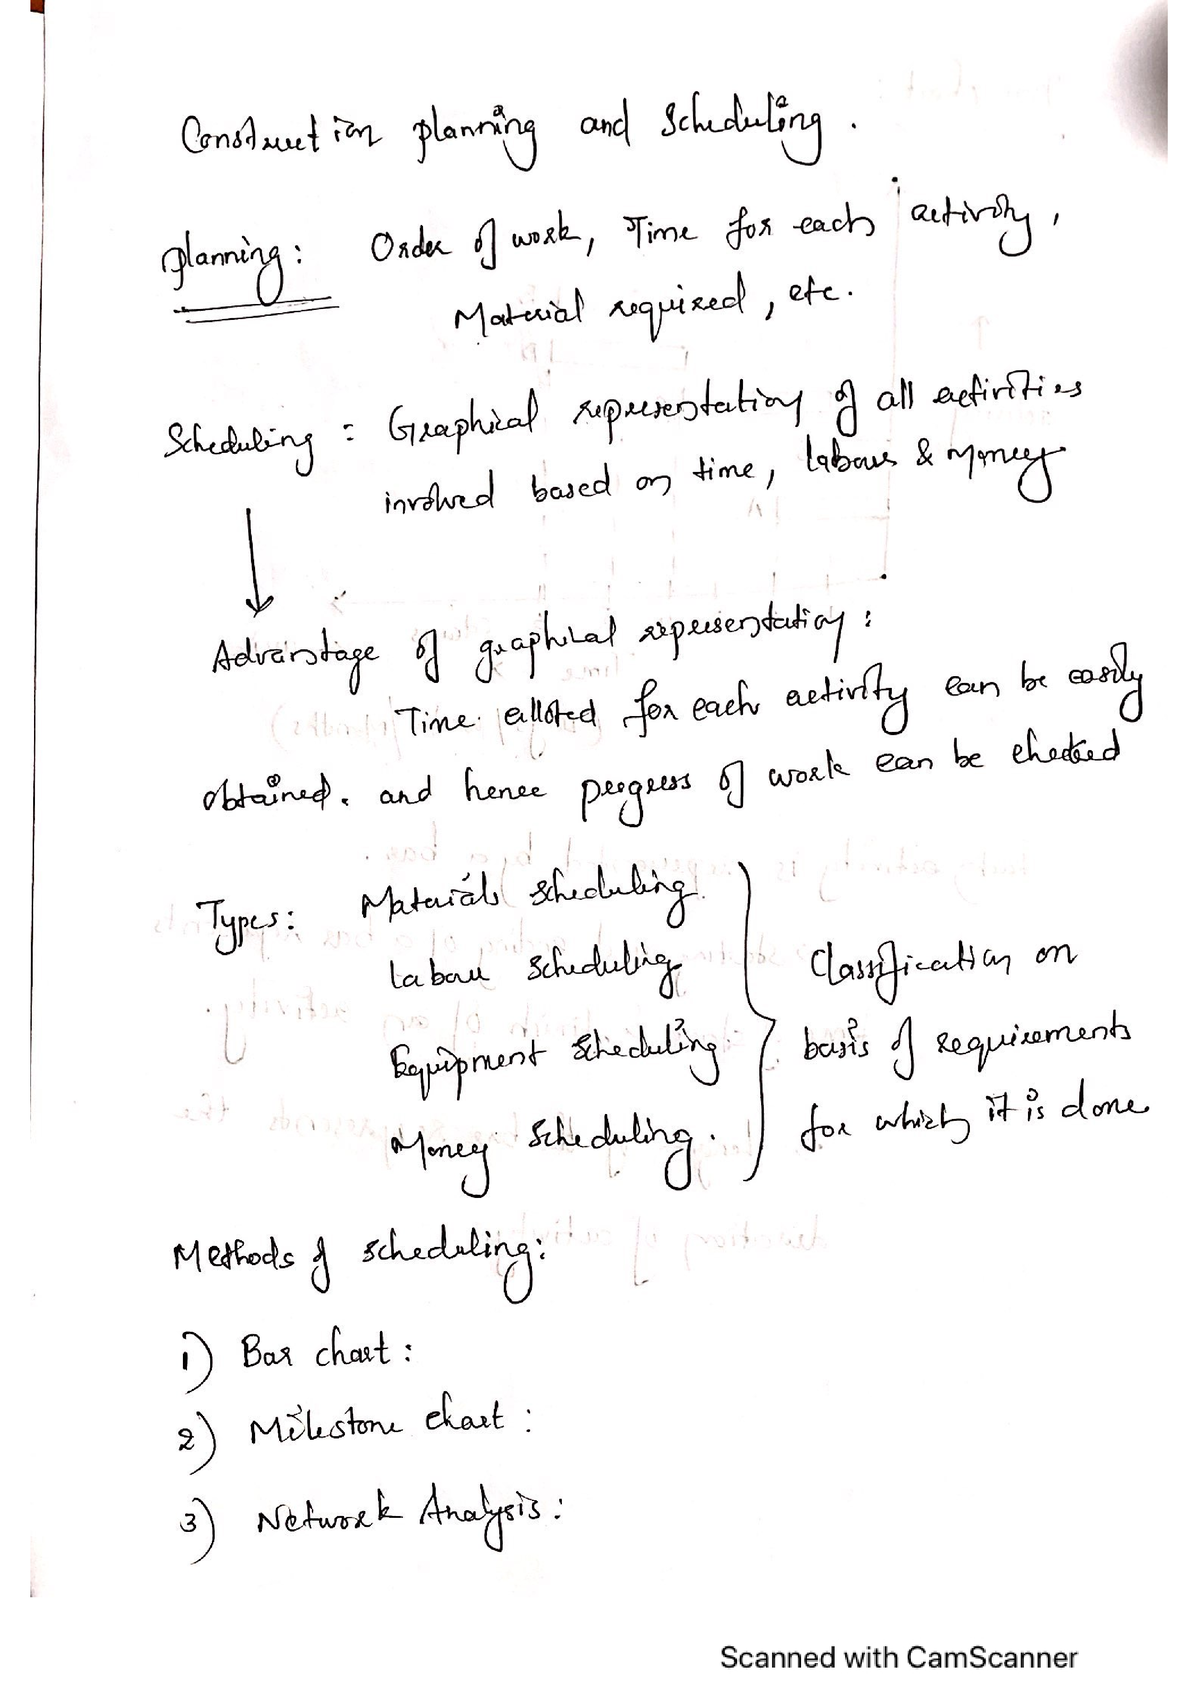 Construction planning and scheduling.
planning: Order of work, Time for each activity,
Material required, etc.
Scheduling: Graphical representation of all activities
involved based on time, labour & money
Advantage of graphical representation:
Time alloted for each activity can be easily
obtained. and hence progress of work can be checked
Types: Materials scheduling
Labour scheduling
Equipment scheduling
Money scheduling.
Classification on
basis of requirements
for which it is done
Methods of scheduling:
1) Bar chart:
2) Milestone chart:
3) Network Analysis:
Scanned with CamScanner